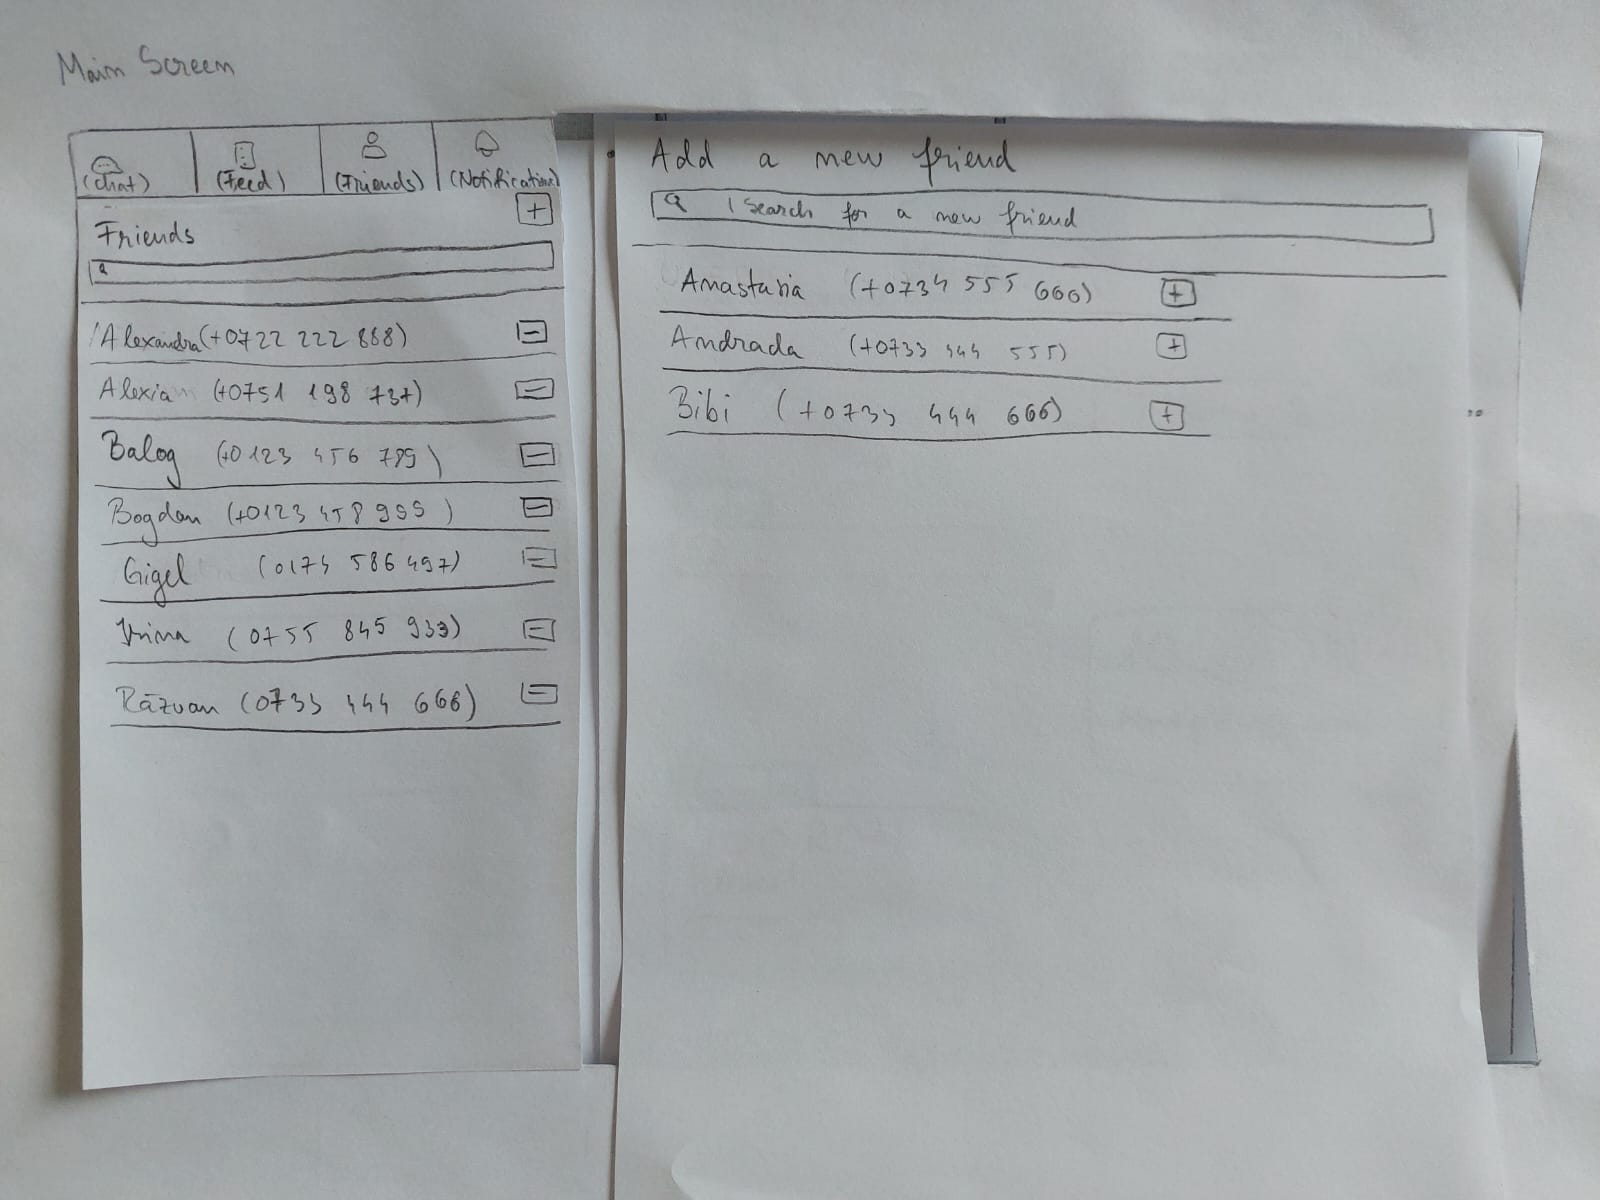 Main Screen
(Chat) (Feed) (Friends) (Notifications)
Friends +
Alexandra (+0722 222 888) -
Alexia (+0751 198 737) -
Balog (+0123 456 789) -
Bogdan (+0123 458 999) -
Gigel (0174 586 497) -
Irina (0755 845 939) -
Răzvan (0733 444 666) -
Add a new friend
Search for a new friend
Anastasia (+0734 555 666) +
Andrada (+0733 444 555) +
Bibi (+0733 444 666) +